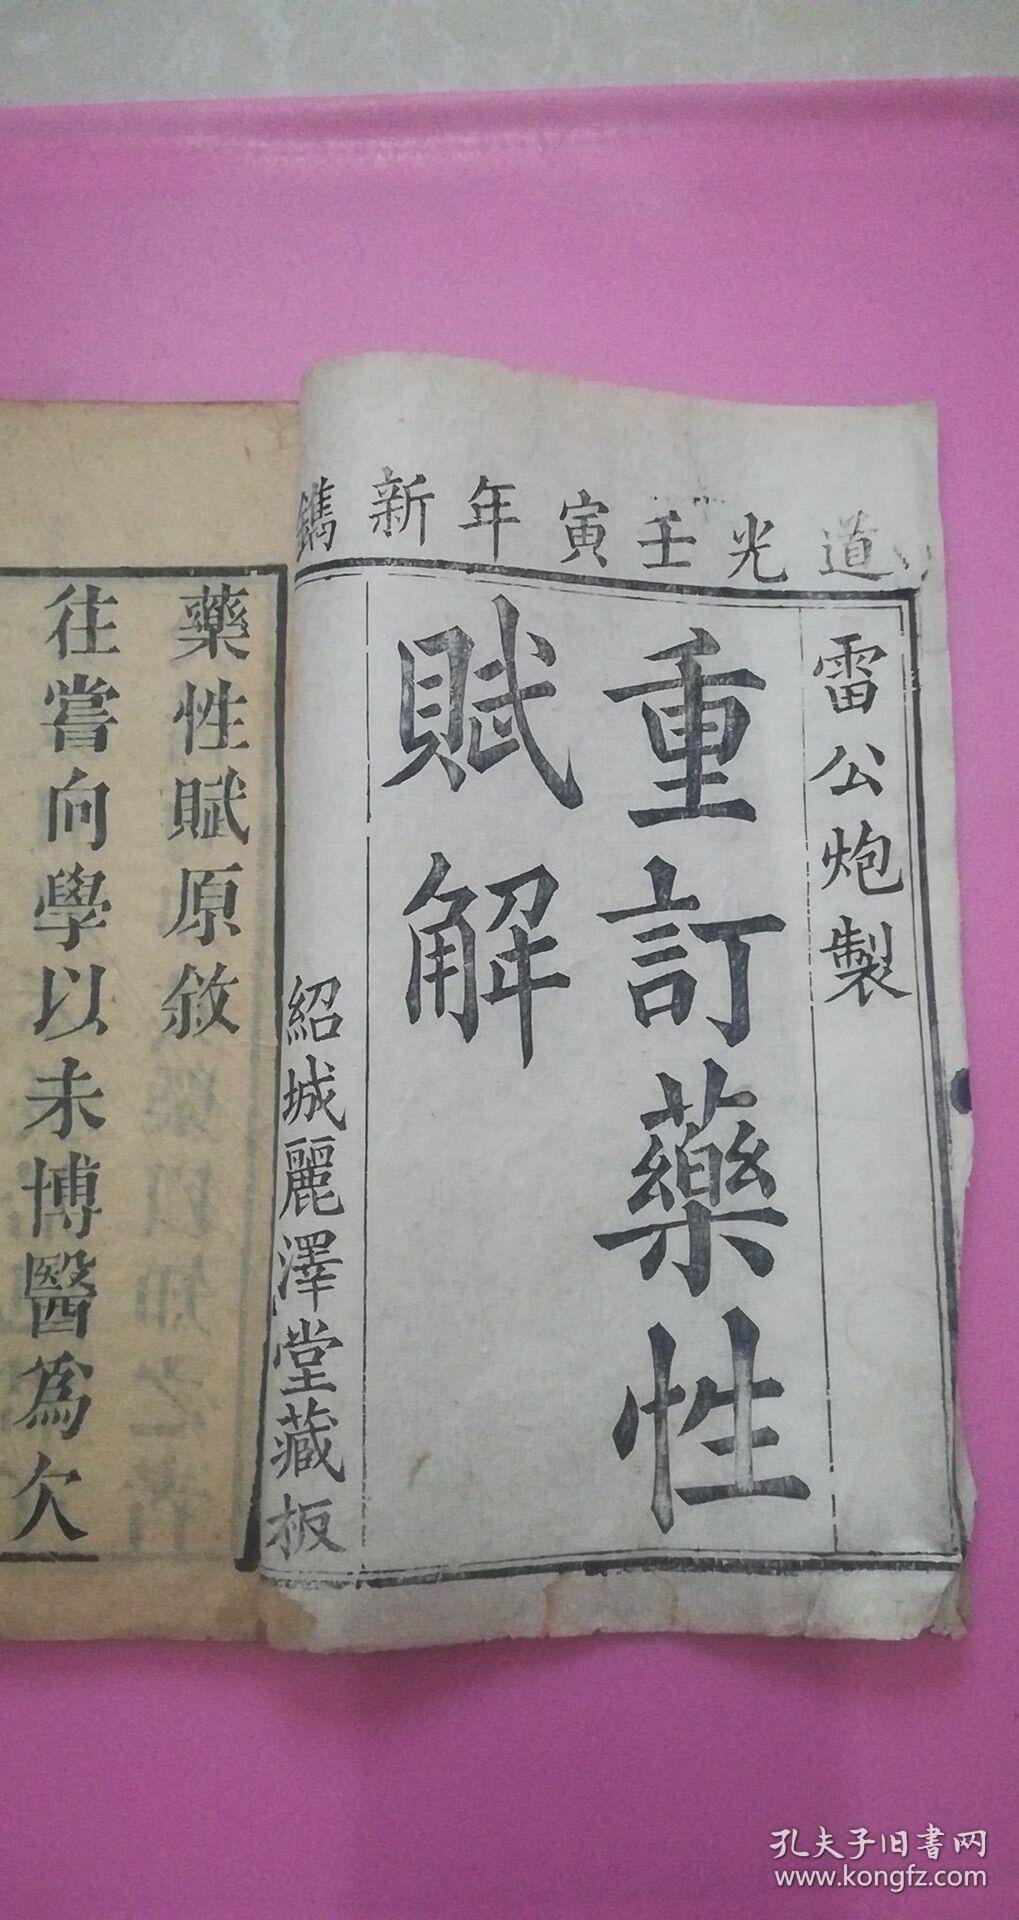 道光壬寅年新鐫
雷公炮製
重訂藥性
賦解
紹城麗澤堂藏板
藥性賦原敘
往嘗向學以未博醫爲欠
孔夫子旧书网
www.kongfz.com